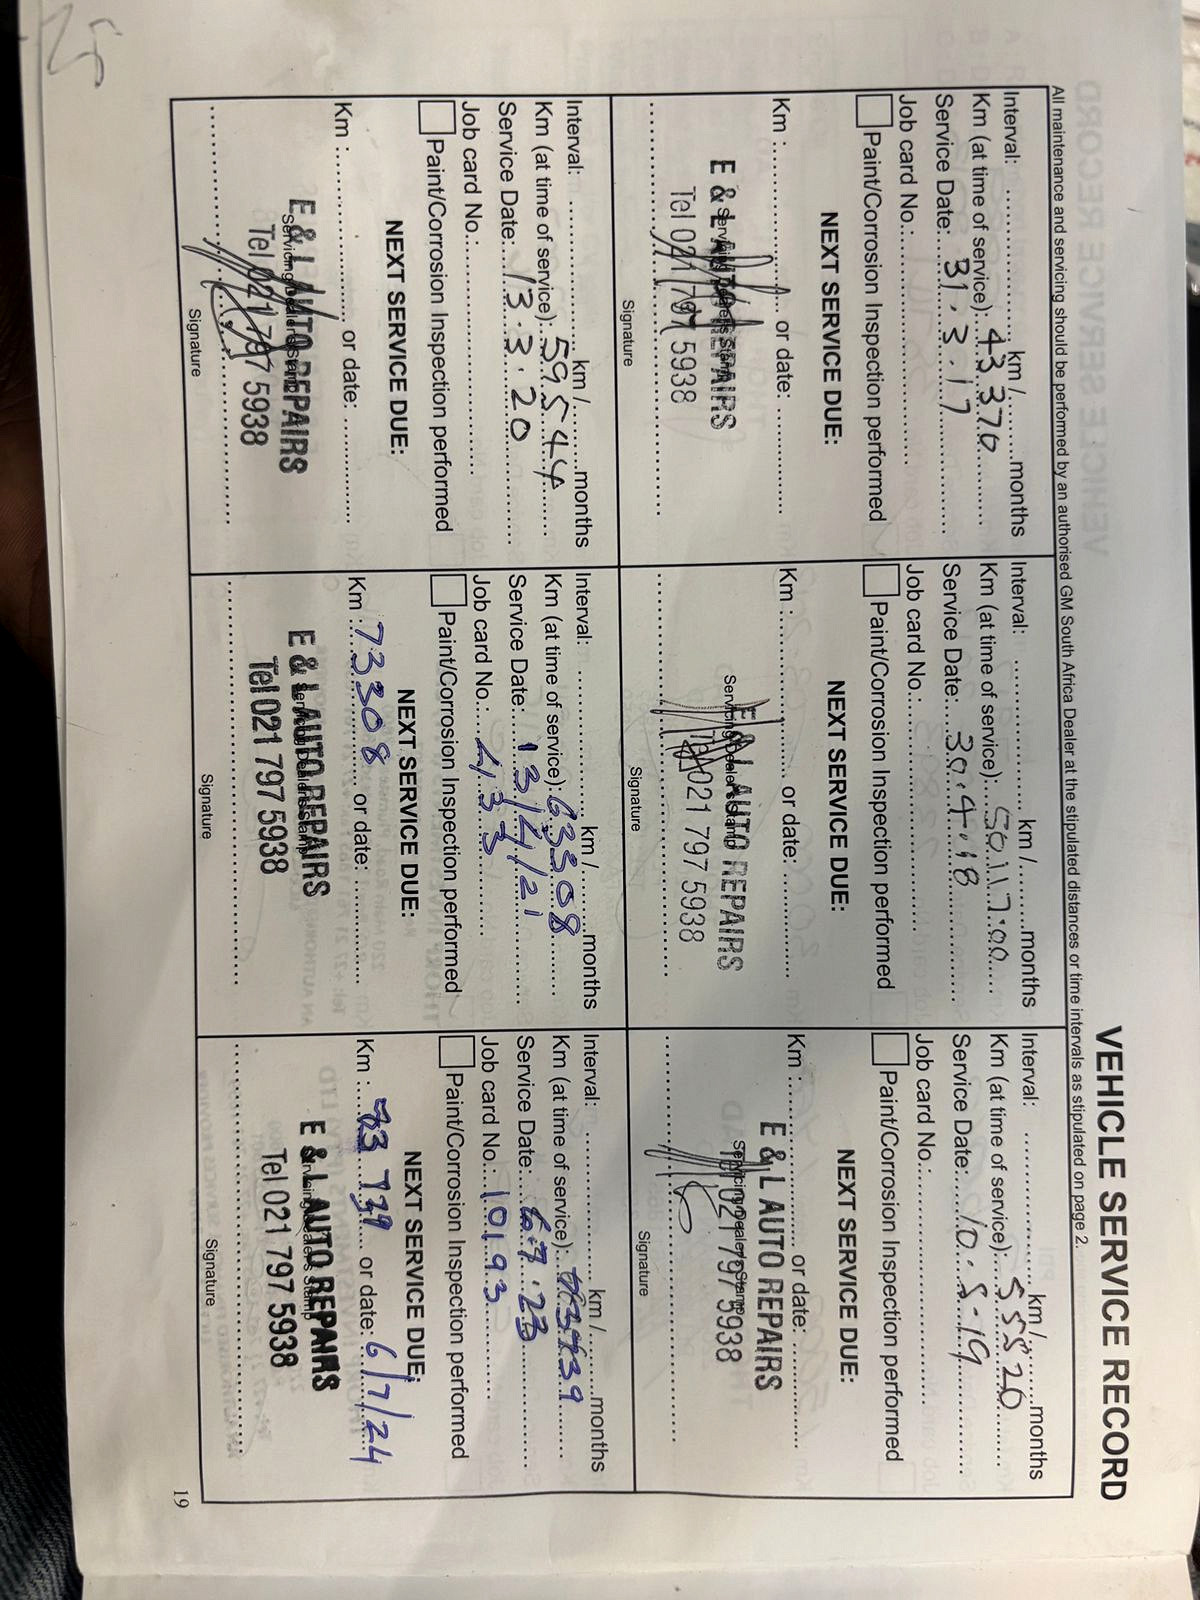 VEHICLE SERVICE RECORD
All maintenance and servicing should be performed by an authorised GM South Africa Dealer at the stipulated distances or time intervals as stipulated on page 2.
Interval: .................... km /..........months
Km (at time of service): 43 376
Service Date: 31.3.17
Job card No.:
Paint/Corrosion Inspection performed
NEXT SERVICE DUE:
Km : .................... or date: ....................
E & L AUTO REPAIRS
Servicing Dealer's Stamp
Tel 021 797 5938
Signature
Interval: .................... km /..........months
Km (at time of service): 50.117.00
Service Date: 30.4.18
Job card No.:
Paint/Corrosion Inspection performed
NEXT SERVICE DUE:
Km : .................... or date: ....................
E & L AUTO REPAIRS
Servicing Dealer's Stamp
Tel 021 797 5938
Signature
Interval: .................... km /..........months
Km (at time of service): 55526
Service Date: 10.5.19
Job card No.:
Paint/Corrosion Inspection performed
NEXT SERVICE DUE:
Km : .................... or date: ....................
E & L AUTO REPAIRS
Servicing Dealer's Stamp
Tel 021 797 5938
Signature
Interval: .................... km /..........months
Km (at time of service): 59544
Service Date: 13.3.20
Job card No.:
Paint/Corrosion Inspection performed
NEXT SERVICE DUE:
Km : .................... or date: ....................
E & L AUTO REPAIRS
Servicing Dealer's Stamp
Tel 021 797 5938
Signature
Interval: .................... km /..........months
Km (at time of service): 63308
Service Date: 13/4/21
Job card No.: 4133
Paint/Corrosion Inspection performed
NEXT SERVICE DUE:
Km : 73308 or date: ....................
E & L AUTO REPAIRS
Servicing Dealer's Stamp
Tel 021 797 5938
Signature
Interval: .................... km /..........months
Km (at time of service):
Service Date: 6.7.23
Job card No.: 10193
Paint/Corrosion Inspection performed
NEXT SERVICE DUE:
Km : or date: 6/7/24
E & L AUTO REPAIRS
Servicing Dealer's Stamp
Tel 021 797 5938
Signature
19